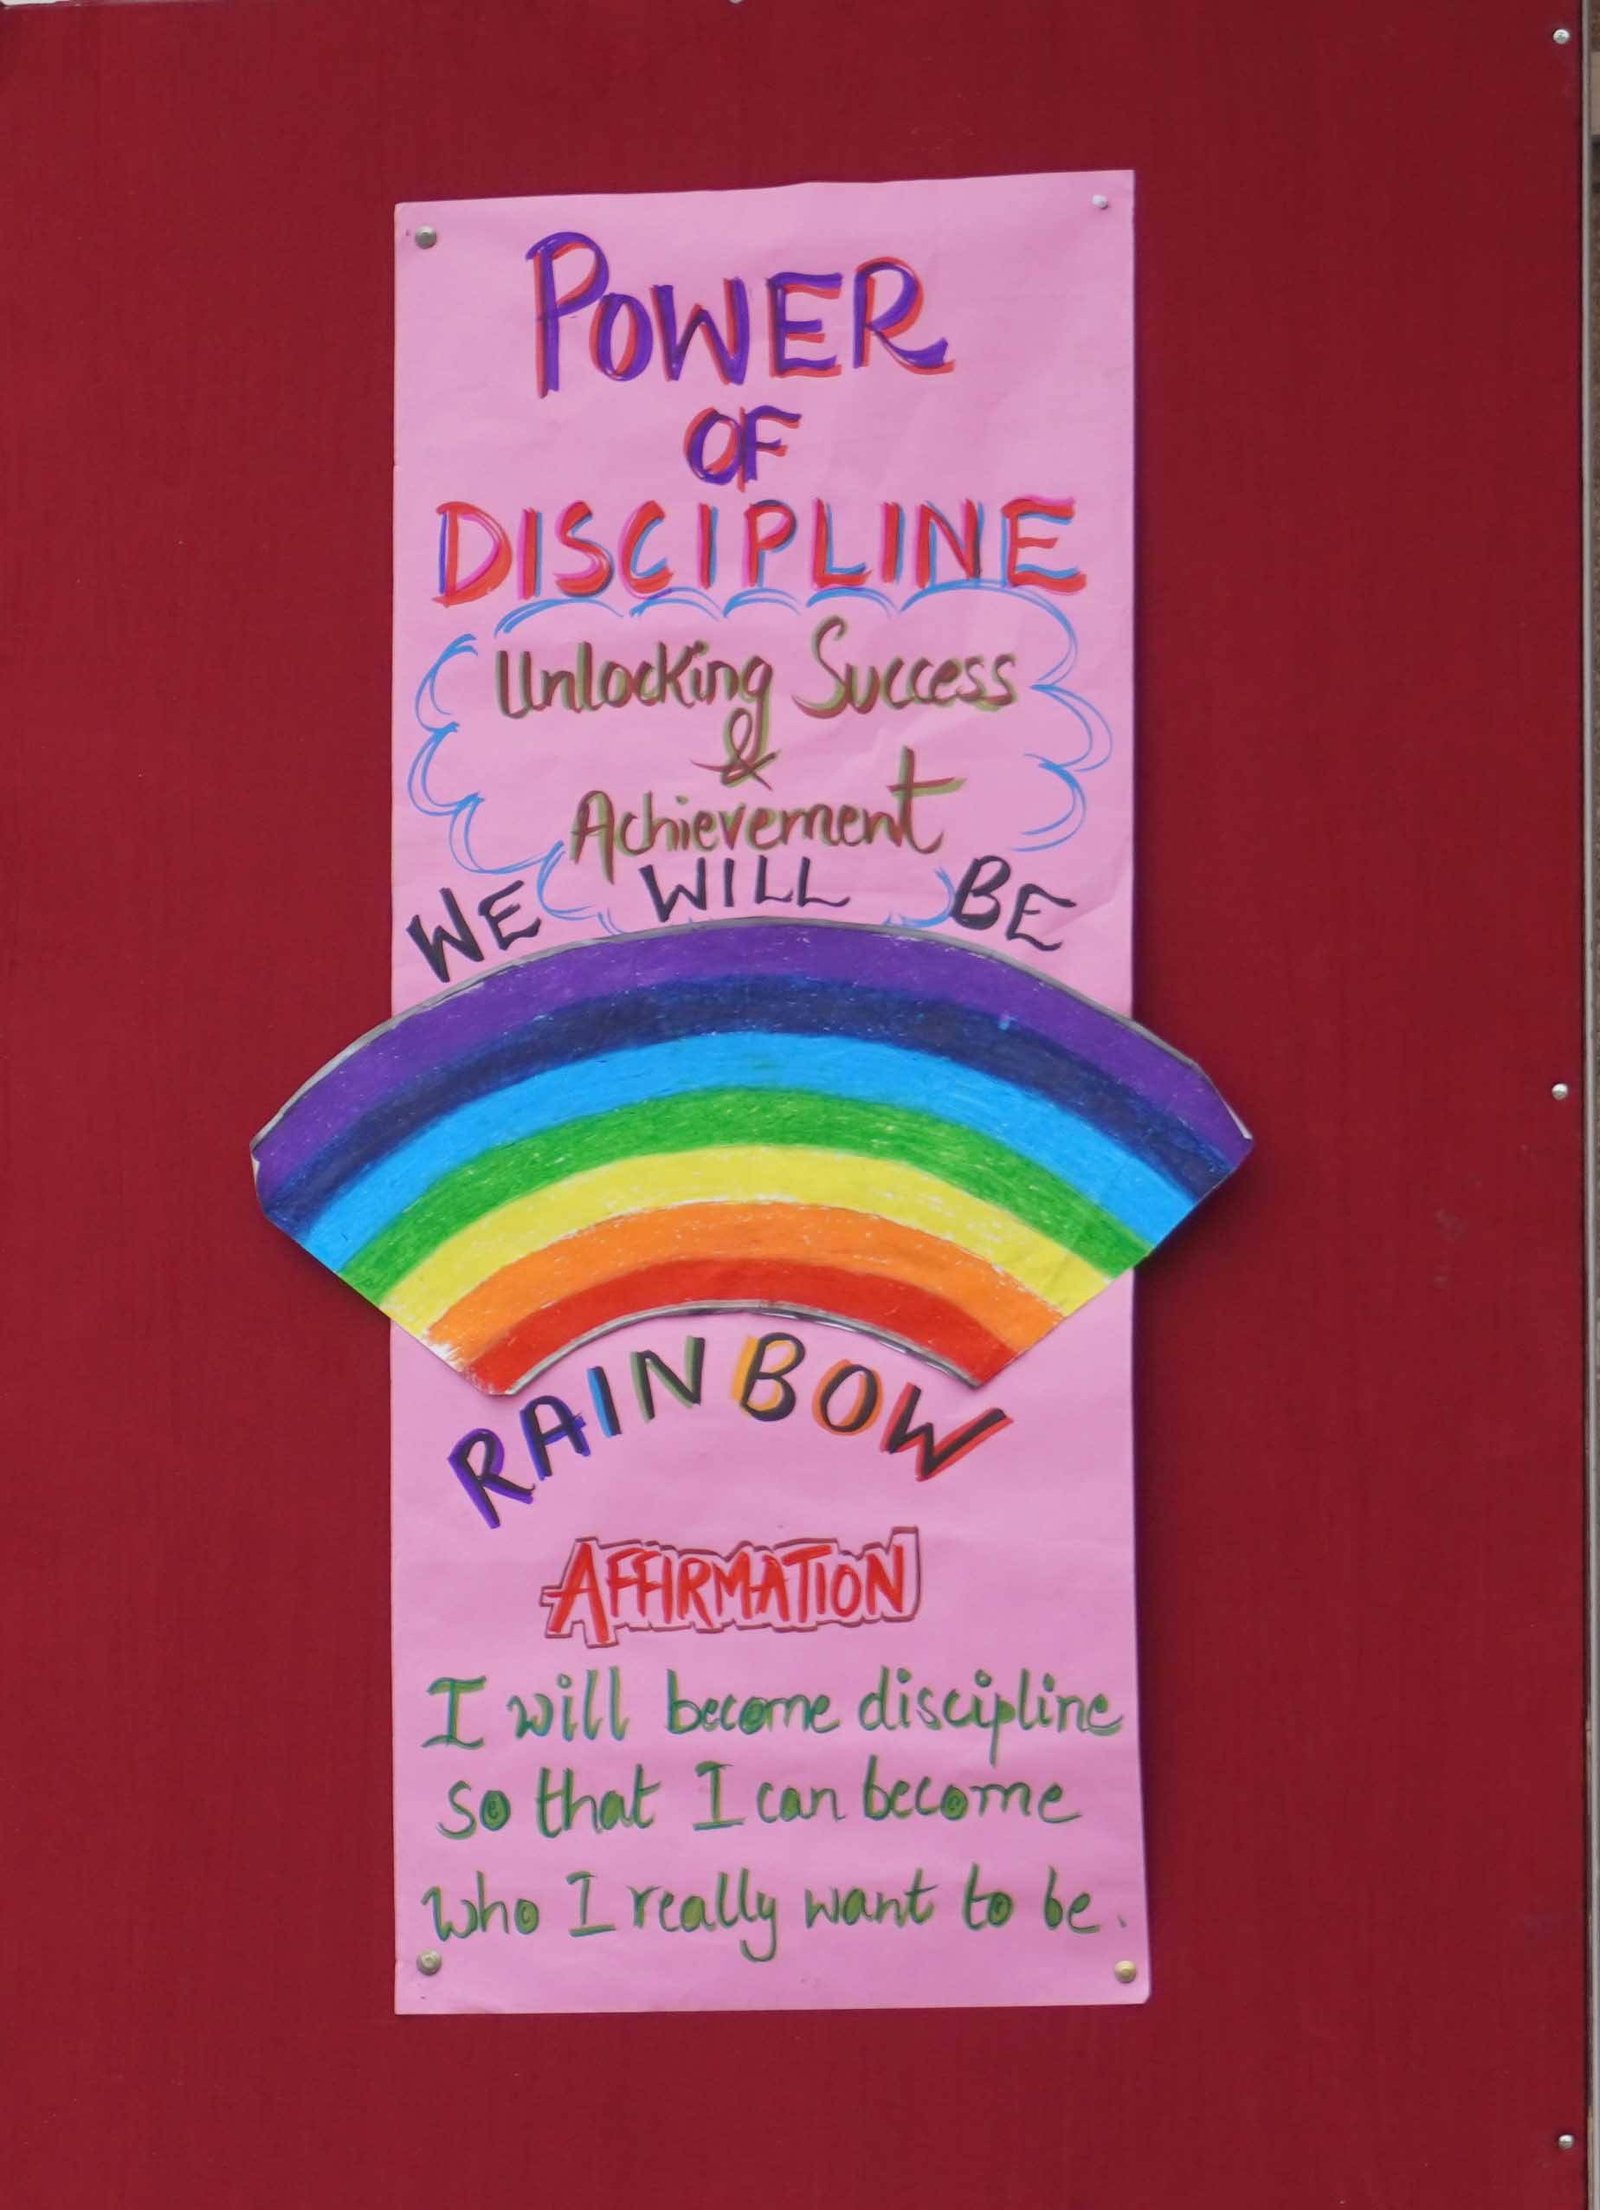 POWER
OF
DISCIPLINE
Unlocking Success
&
Achievement
WE WILL BE
RAINBOW
AFFIRMATION
I will become discipline
so that I can become
who I really want to be.